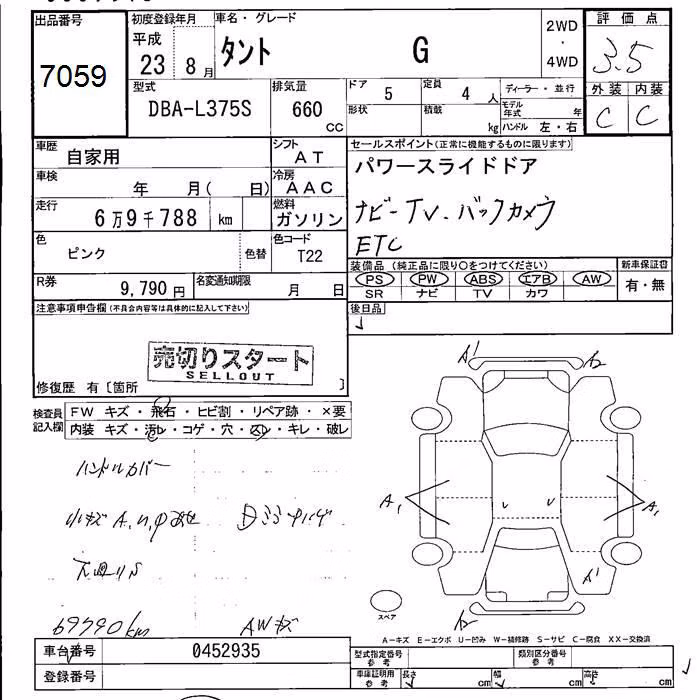 出品番号 初度登録年月 車名・グレード 評価点
7059 平成 23 8月 タント G 2WD・4WD 3.5
型式 排気量 ドア 5 定員 4人 ディーラー・並行 外装 内装
DBA-L375S 660 cc 形状 積載 kg モデル年式 年 ハンドル 左・右 C C
車歴 自家用 シフト AT セールスポイント(正常に機能するものに限ります)
車検 年 月( 日) 冷房 AAC パワースライドドア
走行 6万9千788 km 燃料 ガソリン ナビ-TV.バックカメラ
色 ピンク 色替 色コード T22 ETC
R券 9,790円 名変通知期限 月 日 装備品(純正品に限り○をつけてください) 新車保証書
PS PW ABS エアB AW 有・無
SR ナビ TV カワ
注意事項申告欄(不具合内容等は具体的に記入して下さい) 後日品
売切りスタート
SELLOUT
修復歴 有[箇所 ]
検査員記入欄 FW キズ・飛石・ヒビ割・リペア跡・×要
内装 キズ・汚レ・コゲ・穴・スレ・キレ・破レ
ハンドルカバー
小キズ A.U.
下廻りS
69790km AWキズ
A1 A2
A1 A1
A1
A2
スペア
A-キズ E-エクボ U-凹み W-補修跡 S-サビ C-腐食 XX-交換済
車台番号 0452935 型式指定番号 参考 類別区分番号 参考
登録番号 車庫証明用 参考 長さ cm 幅 cm 高さ cm